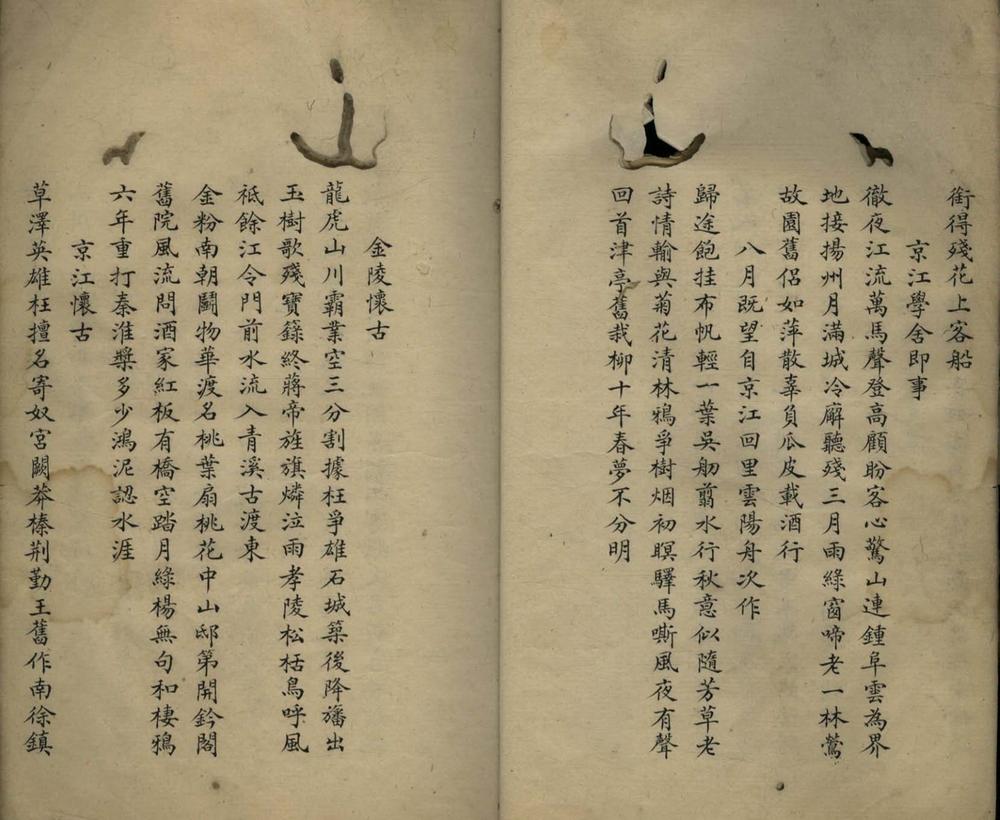 銜得殘花上客船
京江學舍即事
徹夜江流萬馬聲登高顧盼客心驚山連鍾阜雲為界
地接揚州月滿城冷廨聽殘三月雨綠窗啼老一林鶯
故園舊侶如萍散辜負瓜皮載酒行
八月既望自京江回里雲陽舟次作
歸途飽挂布帆輕一葉吳舠翦水行秋意似隨芳草老
詩情輸與菊花清林鴉爭樹烟初暝驛馬嘶風夜有聲
回首津亭舊栽柳十年春夢不分明
金陵懷古
龍虎山川霸業空三分割據枉爭雄石城築後降旛出
玉樹歌殘寶籙終蔣帝旌旗燐泣雨孝陵松栝鳥呼風
祗餘江令門前水流入青溪古渡東
金粉南朝鬬物華渡名桃葉扇桃花中山邸第開鈐閣
舊院風流問酒家紅板有橋空踏月綠楊無句和棲鴉
六年重打秦淮槳多少鴻泥認水涯
京江懷古
草澤英雄枉擅名寄奴宮闕莽榛荊勤王舊作南徐鎮